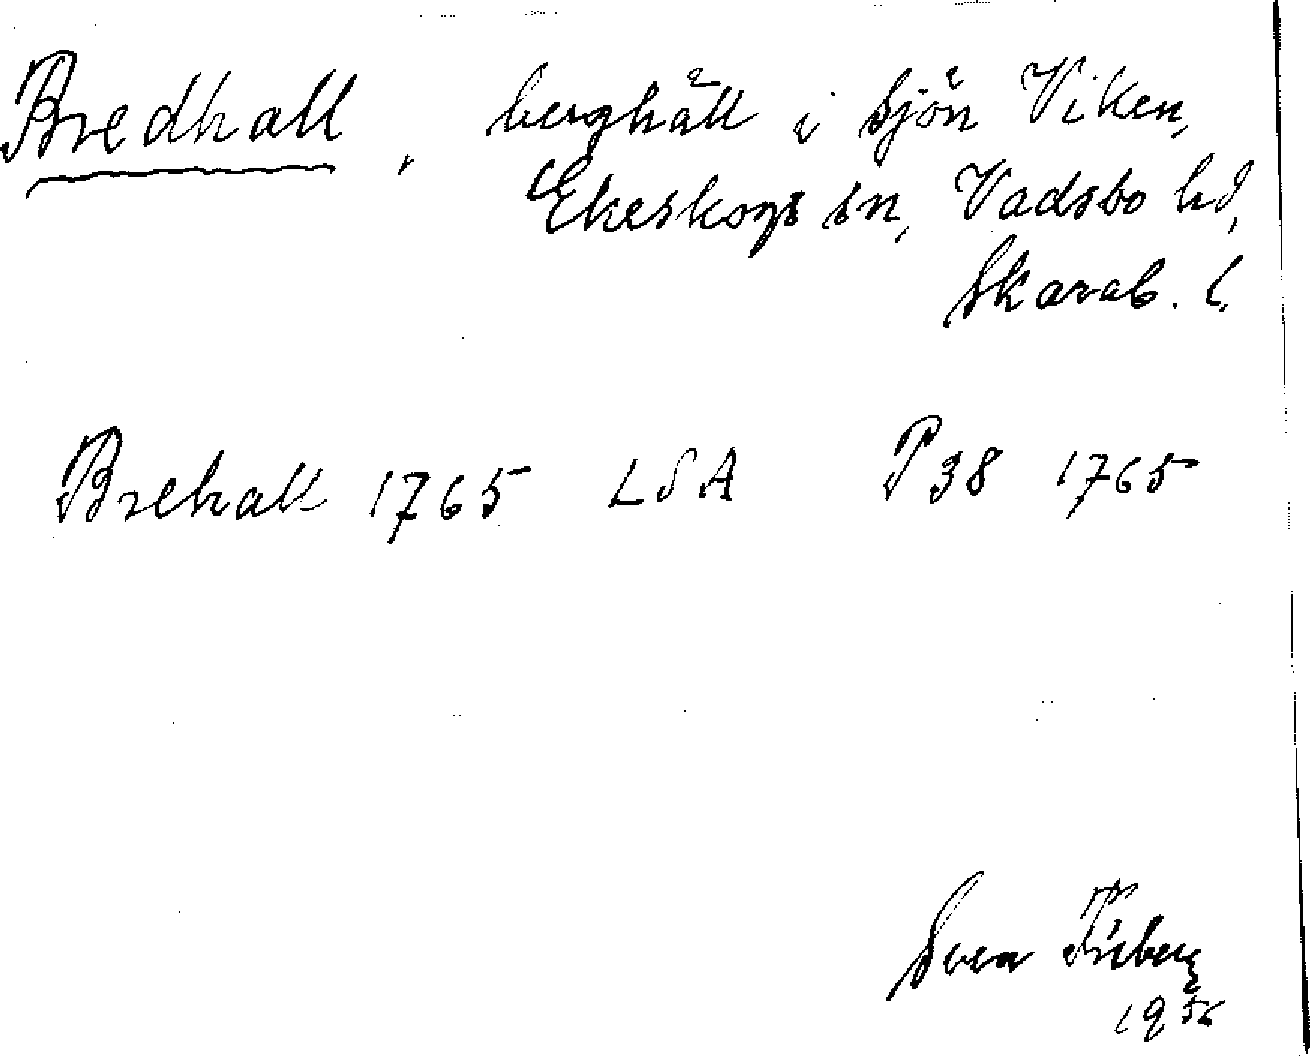 Bredhall, berghäll i sjön Viken,
Ekeskogs sn, Vadsbo hd,
Skarab. l.
Brehall 1765 LSA P38 1765
Sven Friberg
1956